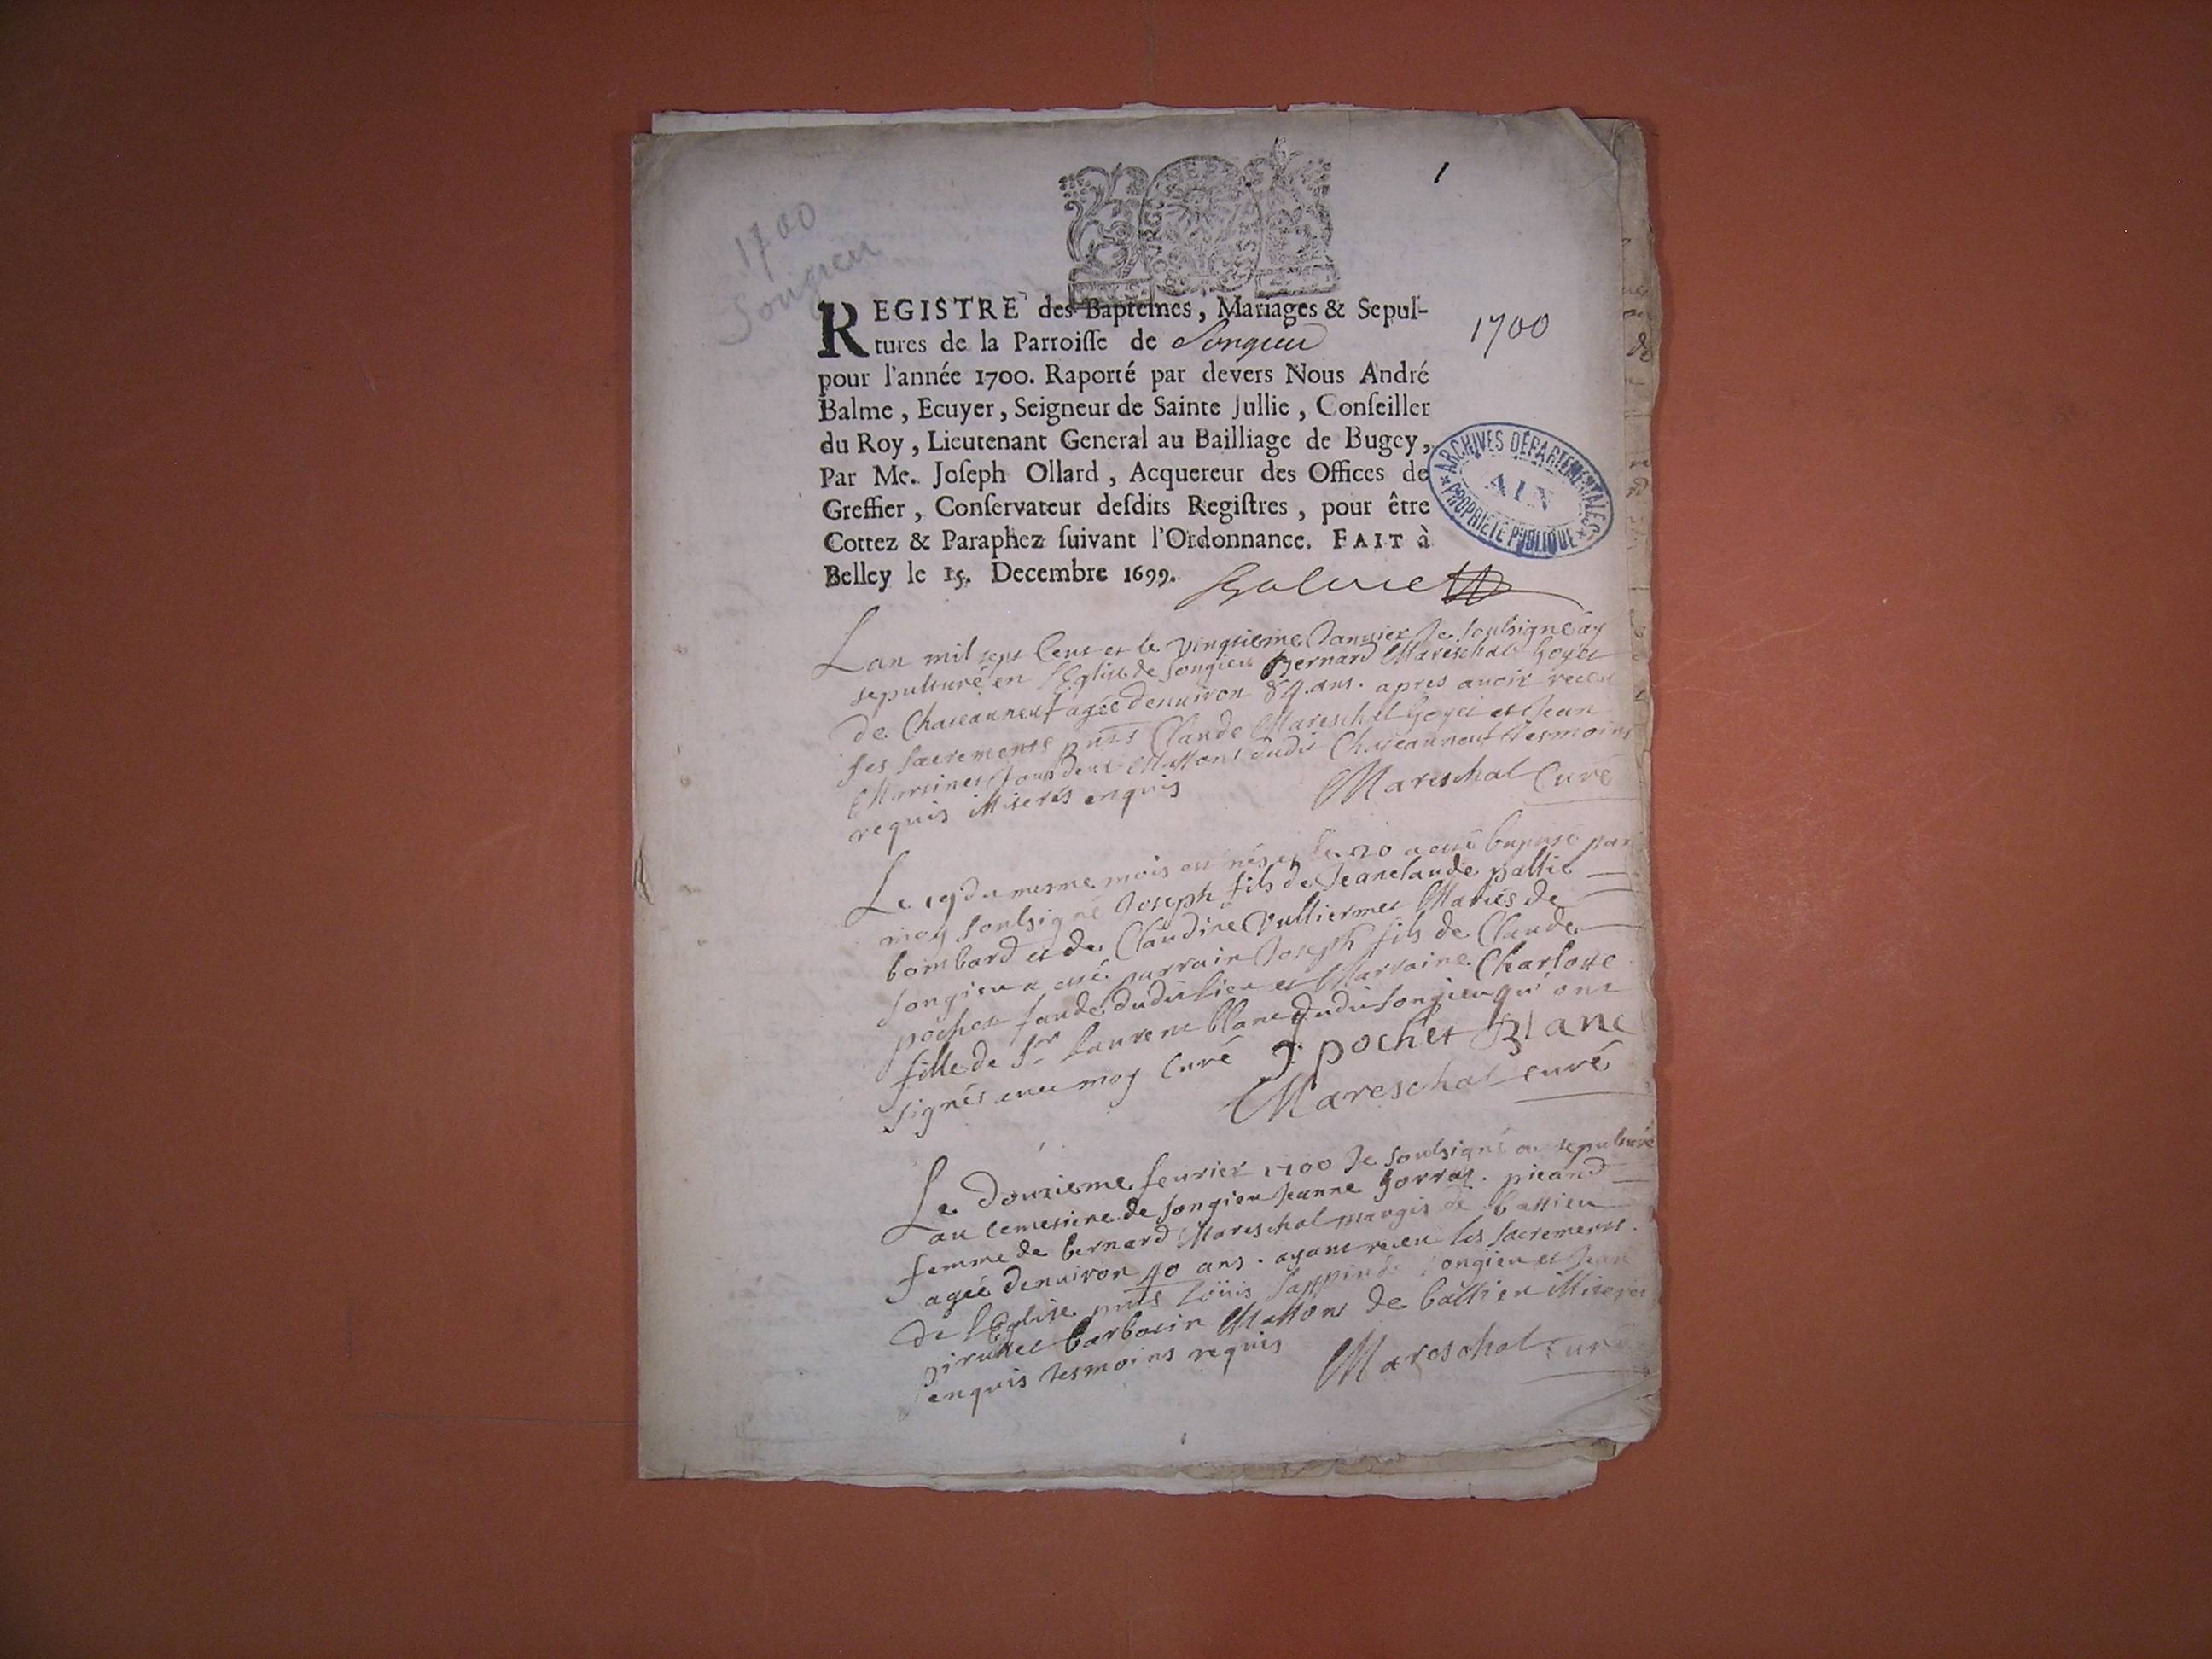 1
1700
Songieu
REGISTRE des Baptemes, Mariages & Sepul-
tures de la Parroisse de Songieu
1700
pour l'année 1700. Raporté par devers Nous André
Balme, Ecuyer, Seigneur de Sainte Jullie, Conseiller
du Roy, Lieutenant General au Bailliage de Bugey,
Par Me. Joseph Ollard, Acquereur des Offices de
Greffier, Conservateur desdits Registres, pour être
Cottez & Paraphez suivant l'Ordonnance. FAIT à
Belley le 15. Decembre 1699.
ARCHIVES DÉPARTEMENTALES
AIN
PROPRIÉTÉ PUBLIQUE
Balme
Lan mil sept Cent et le vingtieme Janvier Je soulsigné ay
sepulturé en l'Eglise de Songieu Bernard Mareschal Goyet
de Chateauneuf agée denuiron 84 ans. apres auoir receu
ses sacrements pnts Claude Mareschal Goyet et Jean
Martinet Mattons dudit Chateauneuf tesmoins
requis illiterés enquis
Mareschal Curé
Le 19 du mesme mois est nés et le 20 a esté baptisé par
moy soulsigné Joseph fils de Jeanclaude pattie
bombard et de Claudine Vulliermet Mariés de
songieu a esté parrain Joseph fils de Claude
pochet faude dudit lieu et Marraine Charlotte
fille de Sr laurent blanc dudit songieu qu'ont
signés auec moy Curé J pochet Blanc
Mareschal curé
Le Douzieme feurier 1700 Je soulsigné ay sepulturé
au Cemetiere de songieu Jeanne Gorraz. picand
femme de bernard Mareschal maugis de bassieu
agée denuiron 40 ans. ayant receu les sacrements
de l'Eglise pnts loüis Sappin de songieu et Jean
pirullet barbarin Mattons de battieu illiterés
enquis tesmoins requis
Mareschal Curé